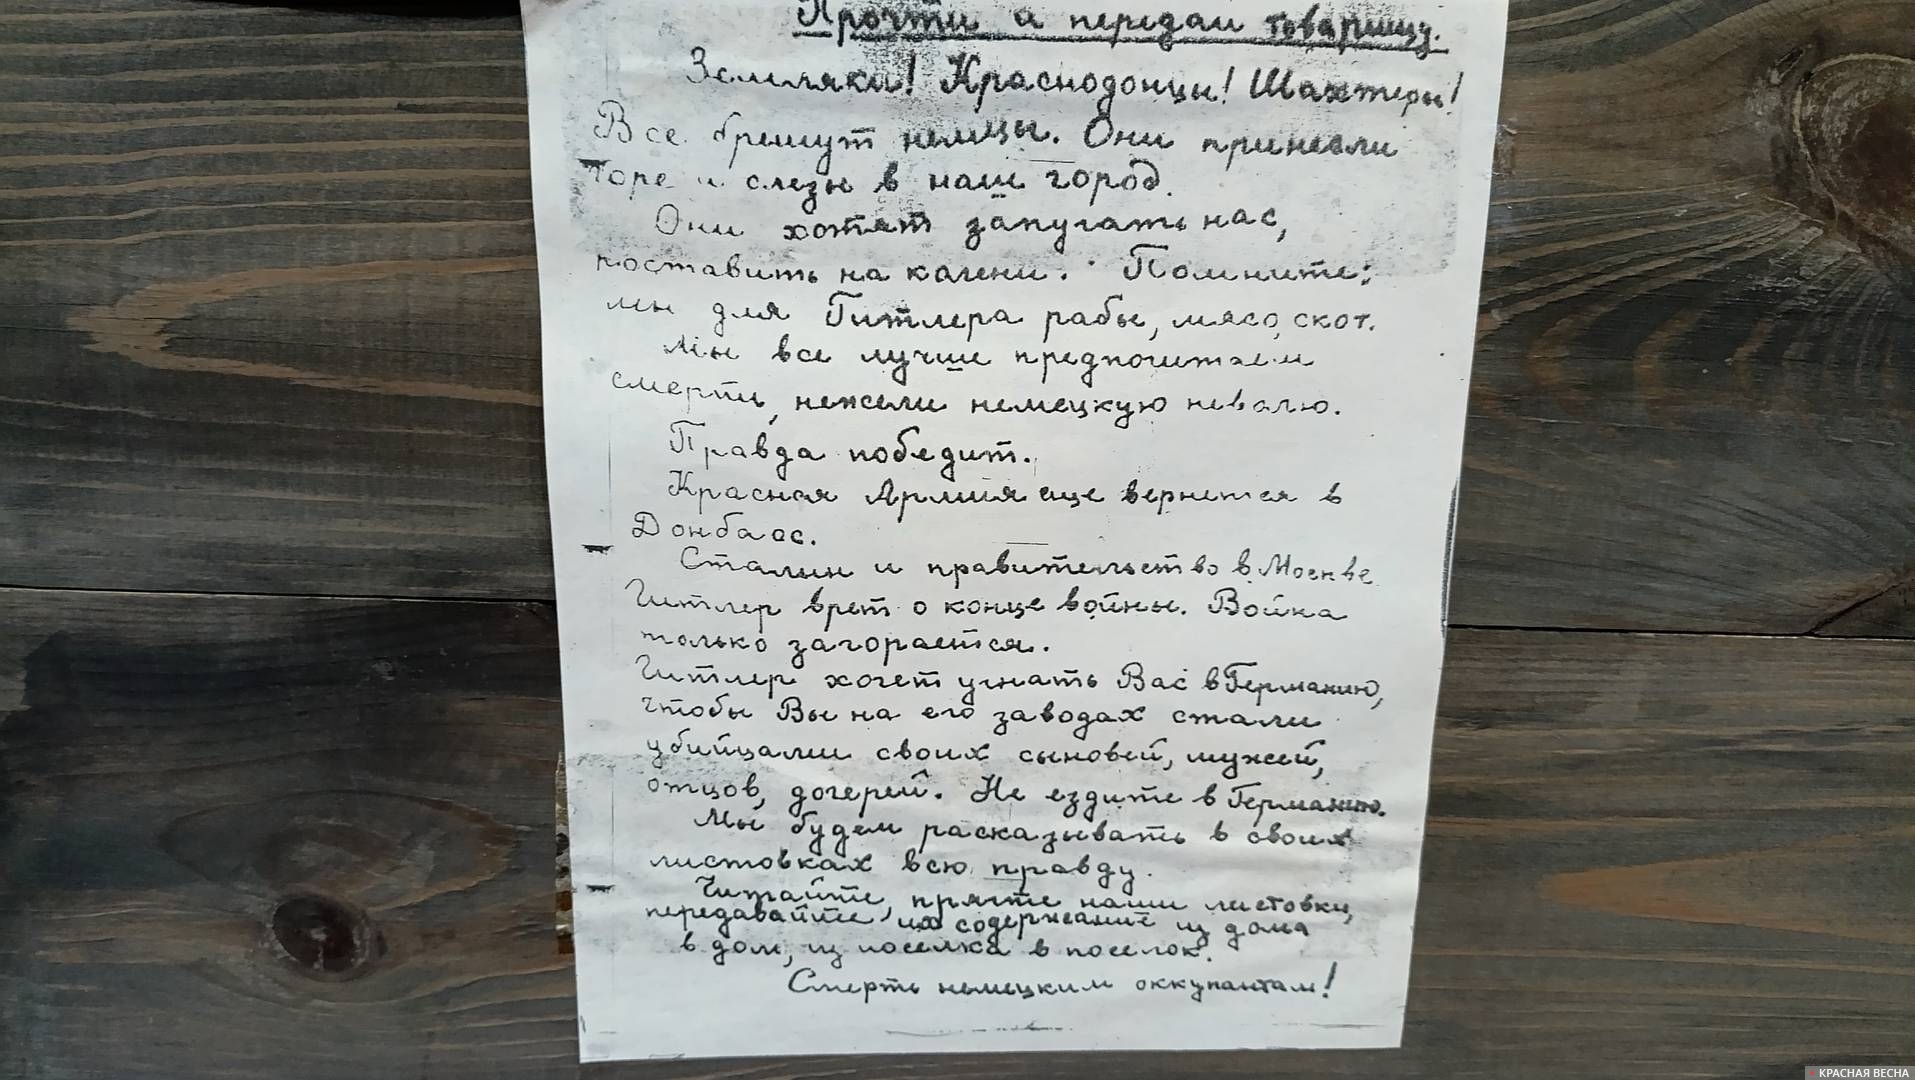 Прочти и передай товарищу.
Земляки! Краснодонцы! Шахтеры!
Все брешут немцы. Они принесли
горе и слезы в наш город.
Они хотят запугать нас,
поставить на колени. Помните:
мы для Гитлера рабы, мясо, скот.
Мы все лучше предпочитаем
смерть, нежели немецкую неволю.
Правда победит.
Красная Армия еще вернется в
Донбасс.
Сталин и правительство в Москве
Гитлер врет о конце войны. Война
только загорается.
Гитлер хочет угнать Вас в Германию,
чтобы Вы на его заводах стали
убийцами своих сыновей, мужей,
отцов, дочерей. Не ездите в Германию.
Мы будем расказывать в своих
листовках всю правду.
Читайте, прячте наши листовки,
передавайте их содержание из дома
в дом, из поселка в поселок.
Смерть немецким оккупантам!
КРАСНАЯ ВЕСНА